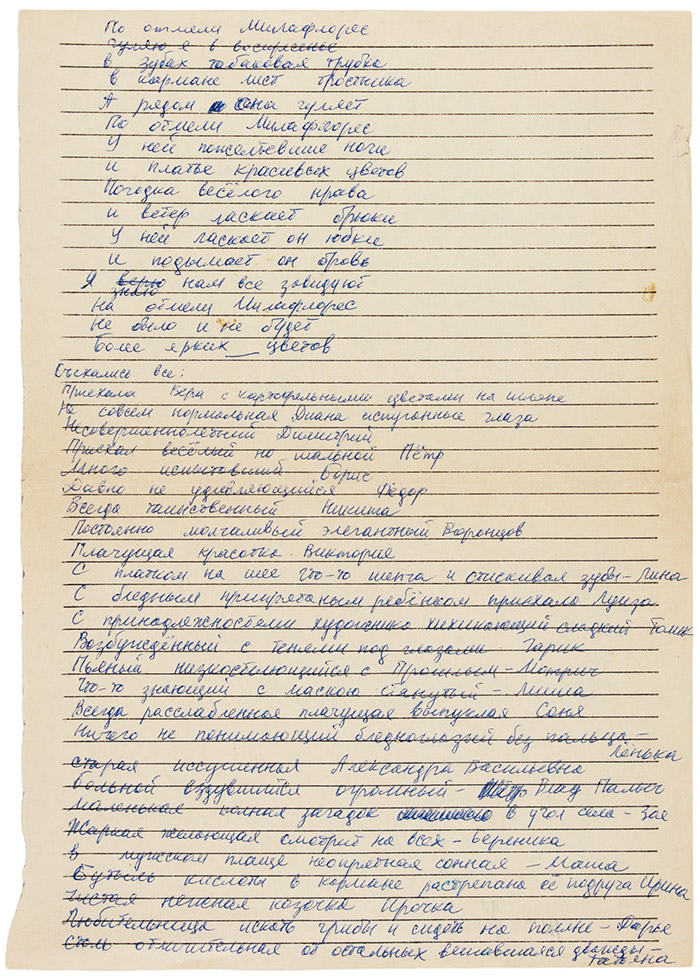 По отмели Милафлорес
Гуляю я в воскресенье
В зубах табаковая трубка
В кармане лист тростника
А рядом она гуляет
По отмели Милафлорес
У ней пожелтевшие ноги
И платье красивых цветов
Погодка весёлого нрава
И ветер ласкает брюки
У ней ласкает он юбки
И подымает он бровь
Я верю нам все завидуют
знаю
На отмели Милафлорес
Не было и не будет
Более ярких цветов
Съехались все:
Приехала Вера с картофельными цветами на шляпе
Не совсем нормальная Диана испуганные глаза
Несовершеннолетний Димитрий
Приехал весёлый но шальной Пётр
Много испытавший Борис
Давно не удивляющийся Фёдор
Всегда таинственный Никита
Постоянно молчаливый элегантный Воронцов
Плачущая красотка Виктория
С платком на шее что-то шепча и стискивая зубы – Лина
С бледным припрятаным ребёнком приехала Луиза
С принадлежностями художника хихикающий сладкий Толик
Возбуждённый с тенями под глазами – Гарик
Пьяный низкостелющийся с Прошлым – Мотрич
Что-то знающий с маскою стянутый – Миша
Всегда расслабленная плачущая выпуклая Соня
Ничего не понимающий бледноглазый без пальца –
Лёнька
старая иссушенная Александра Васильевна
больной вздувшийся огромный – Палыч
Маленькая полная загадок в угол села – Зая
Жаркая желающая смотрит на всех – Вероника
В мужском плаще неопрятная сонная – Маша
Бутыль кислоты в кармане растрёпана её подруга Ирина
Чистая нежная козочка Ирочка
Любительница искать грибы и сидеть на поляне – Дарья
столь отличительная от остальных вешавшаяся дважды –
Татьяна